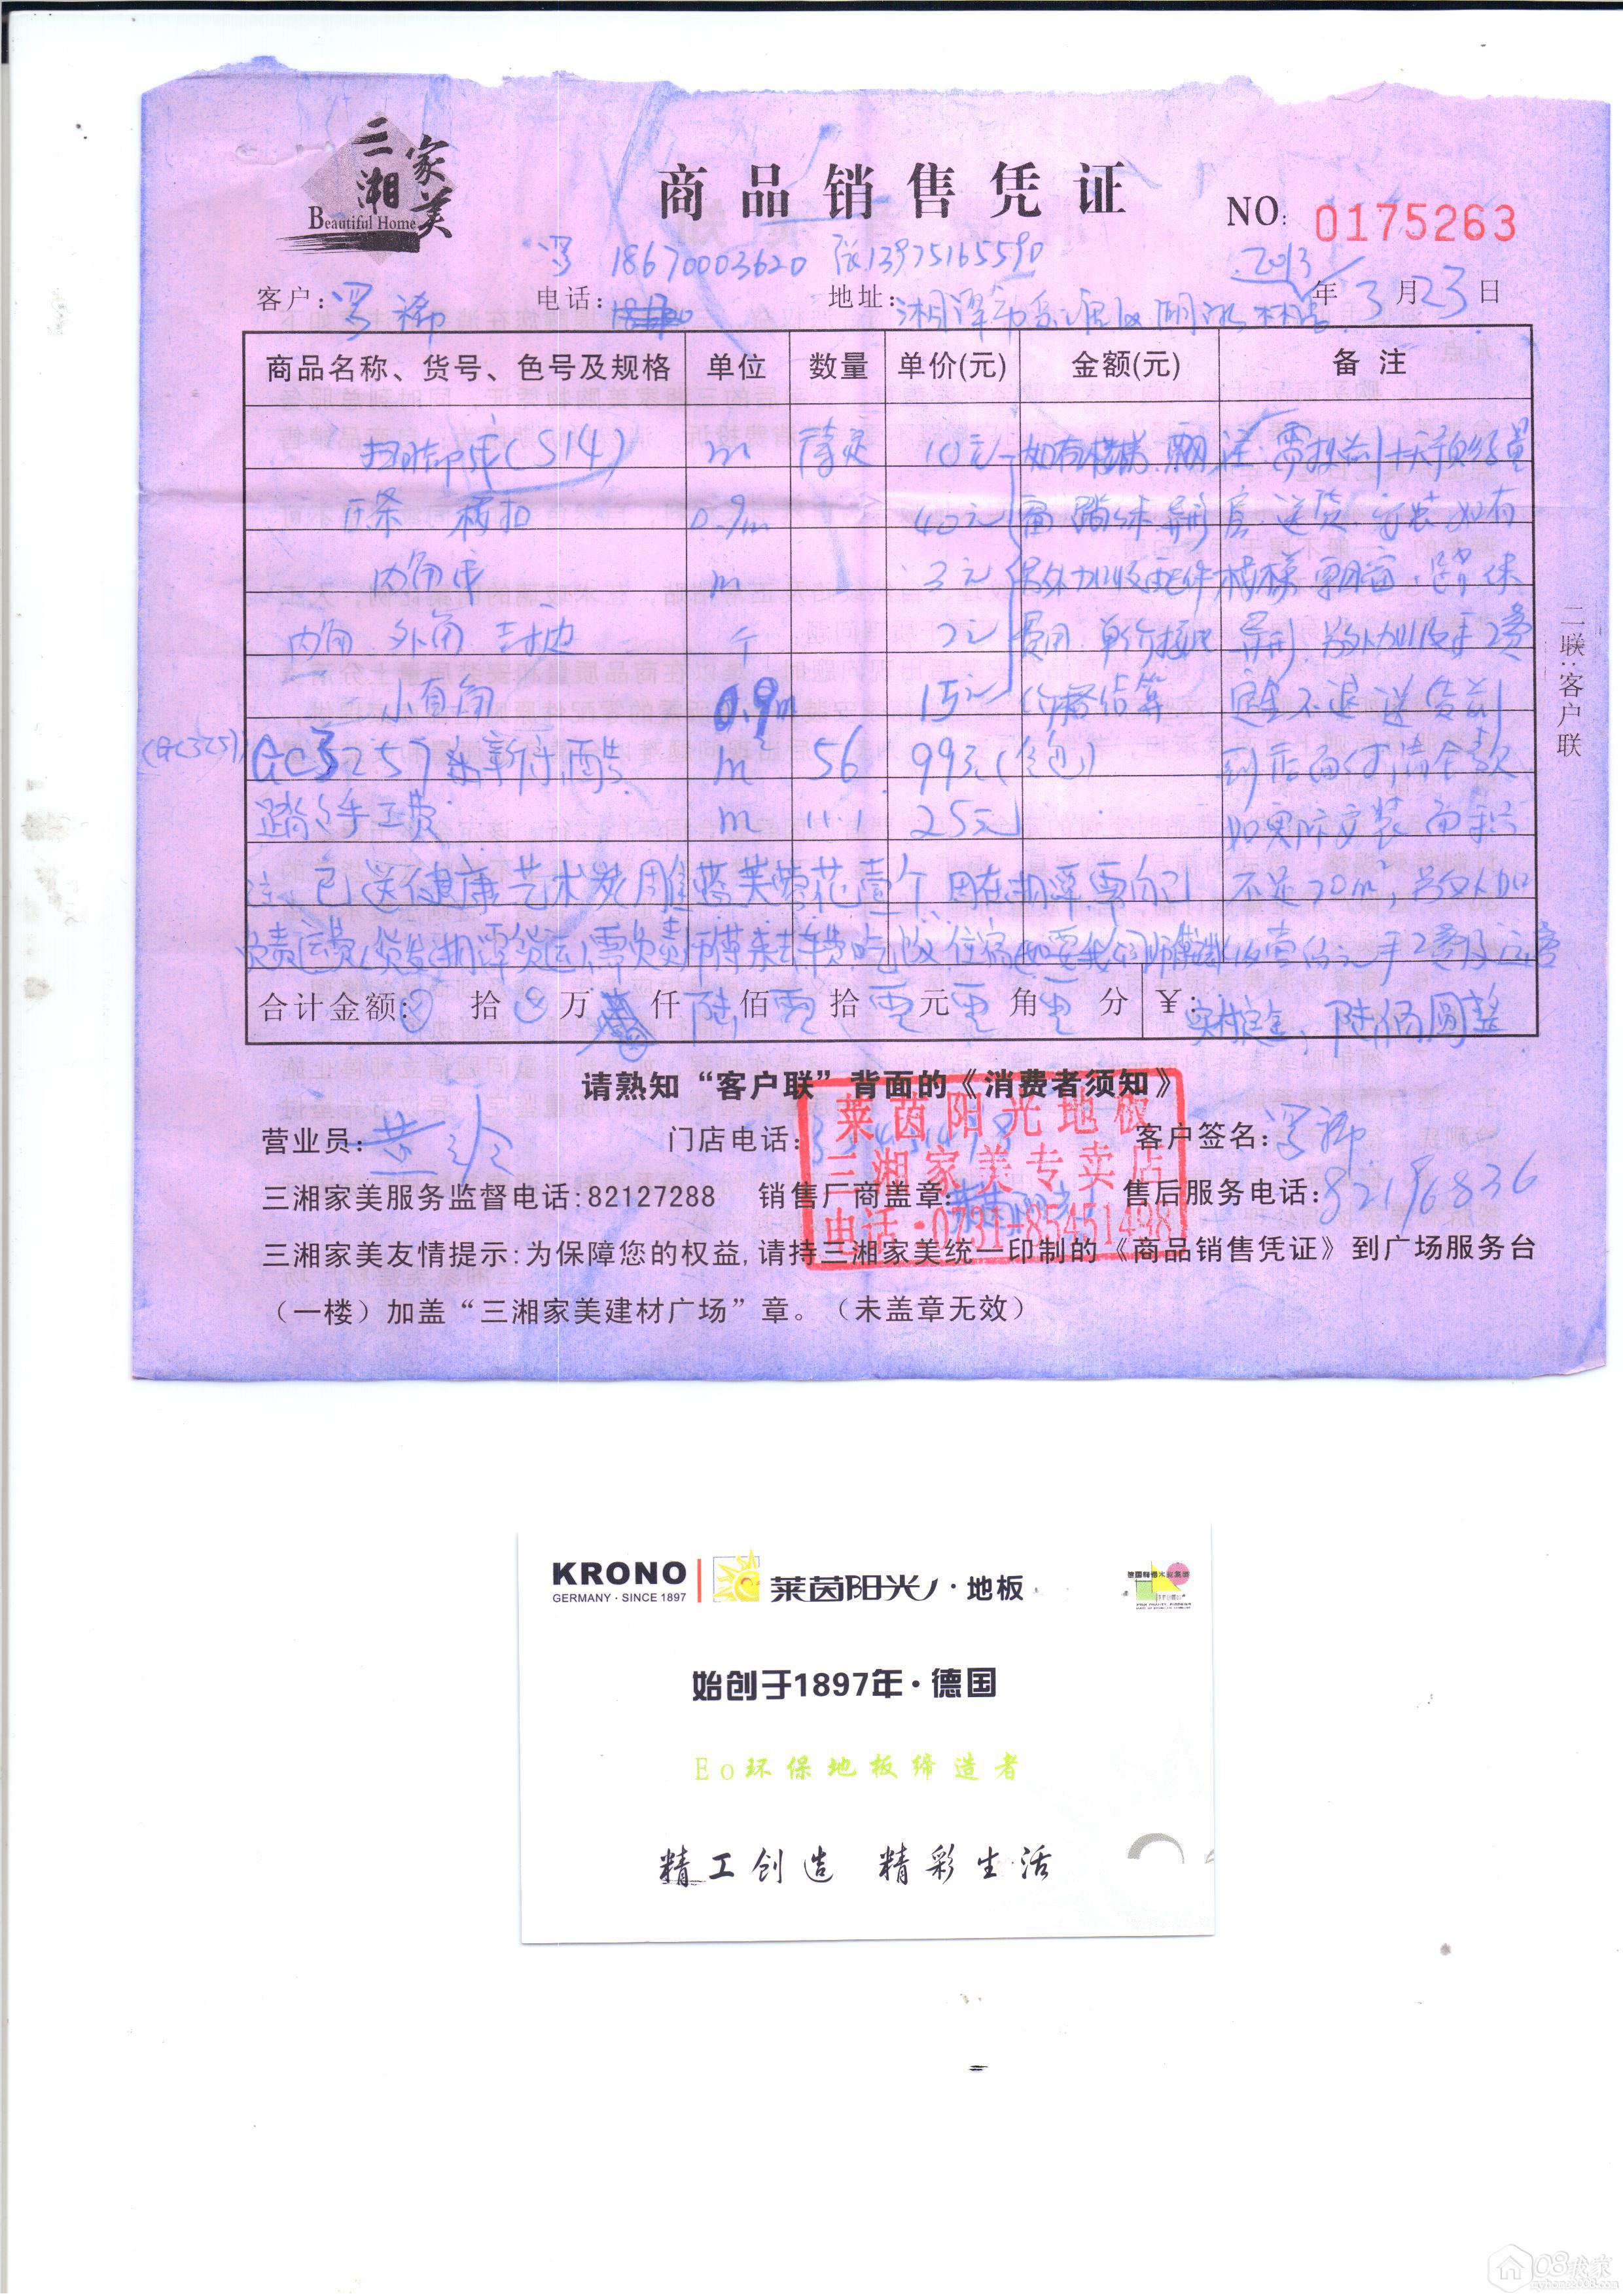 三湘家美
Beautiful Home
商品销售凭证
NO: 0175263
罗 18670003620 张13975165590
客户: 罗 电话: 地址: 湘潭市 2013年3月23日
商品名称、货号、色号及规格 单位 数量 单价(元) 金额(元) 备注
扫脚线(S14) m 待定 10元 如有楼梯 注:需提前十天预约量
压条 楼扣 0.9m 40元 窗 踏步 异形 房.送货.安装.如有
内角线 m 3元 另外加收配件 楼梯 飘窗.踏步
内角 外角 个 2元 费用.单价按此 异形.另外加收手工费
小直角 0.9m 15元 价格结算 定金不退 送货前
(GC3257) GC3257 m² 56 99元(全包) 到店面付清全款
踏步手工费 m 11.1 25元 如实际安装面积
注:已送健康艺术炭雕 芙蓉花壹个.因在湘潭.需自己 不足70m²,另外加
负责运费(货发湘潭货运).需负责师傅来去车费.吃饭.住宿 收壹佰元手工费及运费
合计金额: 拾 万 仟 陆 佰 零 拾 零 元 零 角 零 分 ¥: 实付定金:陆佰圆整
请熟知“客户联”背面的《消费者须知》
二联:客户联
莱茵阳光地板
三湘家美专卖店
电话:0731-85451498
营业员: 黄 门店电话: 客户签名: 罗
三湘家美服务监督电话:82127288 销售厂商盖章: 莱茵阳光 售后服务电话: 82196836
三湘家美友情提示:为保障您的权益,请持三湘家美统一印制的《商品销售凭证》到广场服务台
(一楼)加盖“三湘家美建材广场”章。(未盖章无效)
KRONO 莱茵阳光·地板
GERMANY·SINCE 1897
始创于1897年·德国
Eo环保地板缔造者
精工创造 精彩生活
08我家